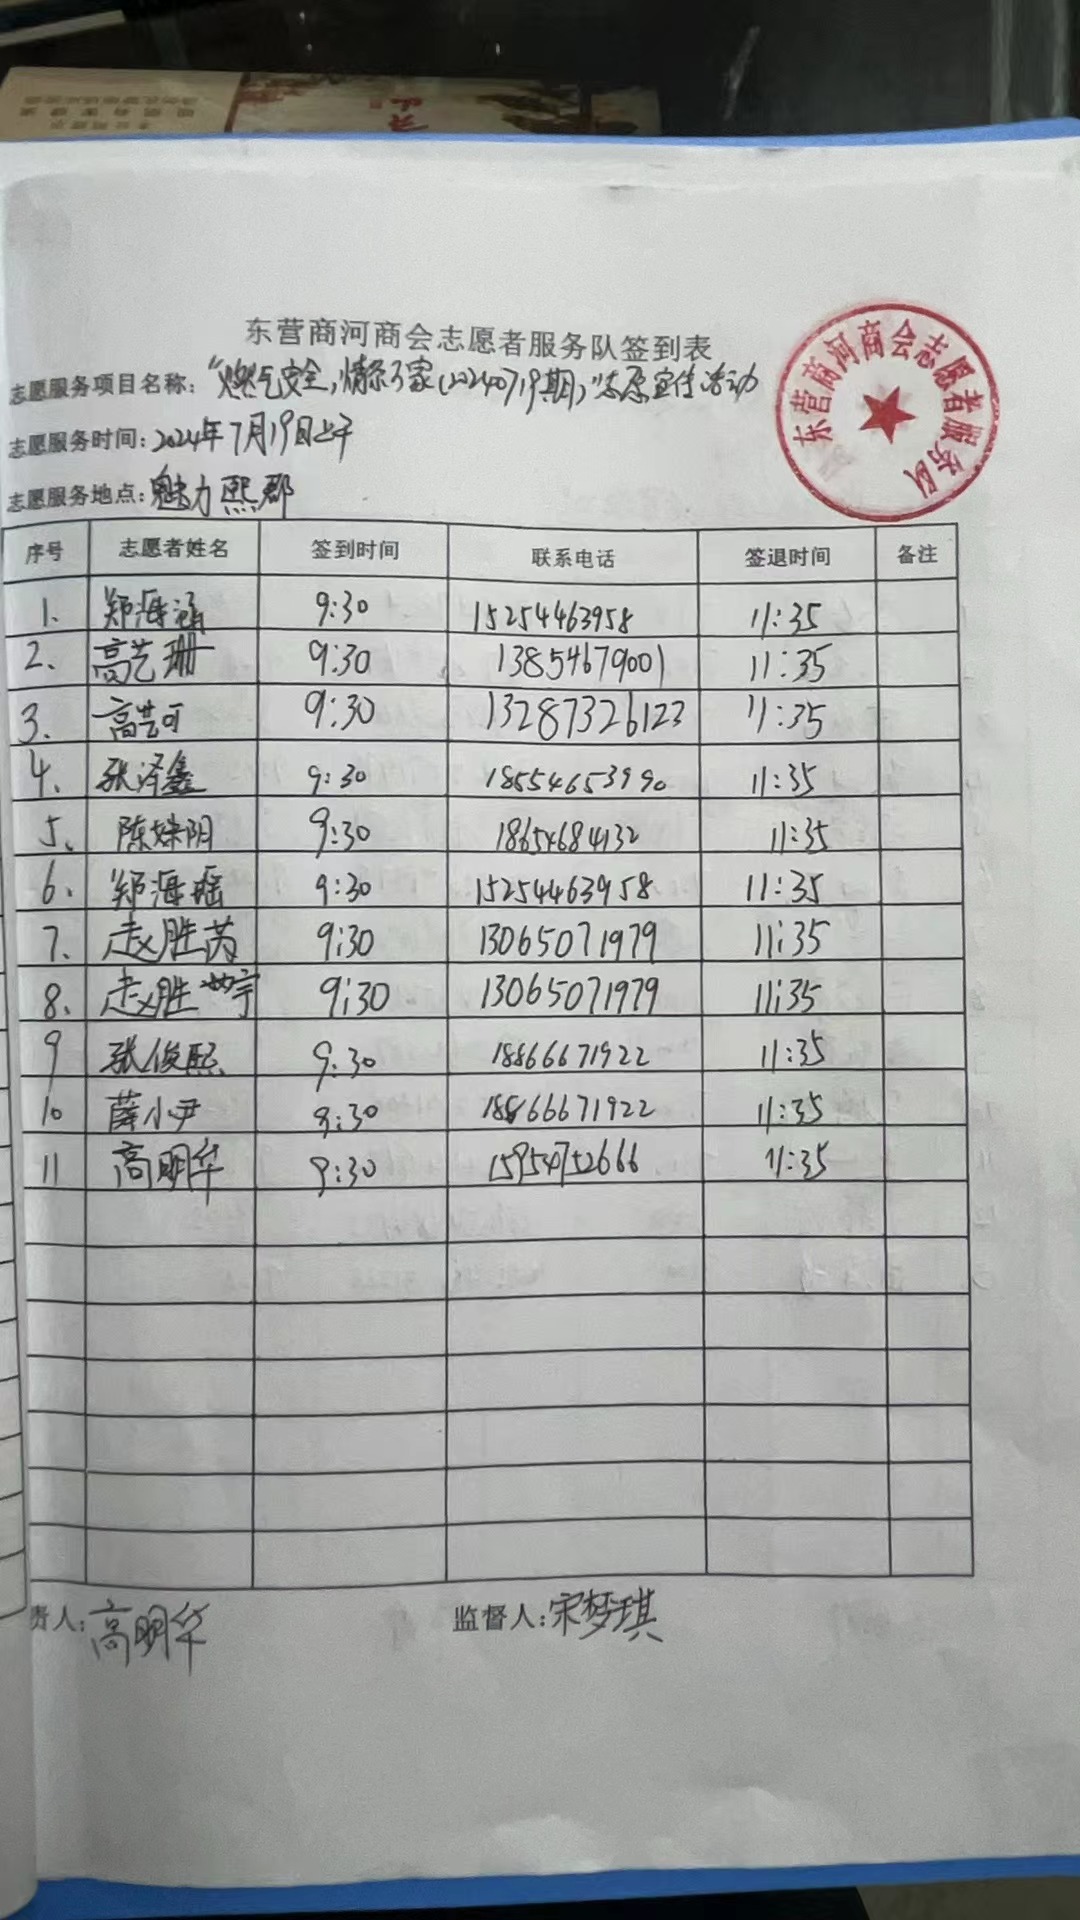 东营商河商会志愿者服务队签到表
志愿服务项目名称：“燃气安全，情系万家（20240719期）”志愿宣传活动
志愿服务时间：2024年7月19日上午
志愿服务地点：魅力熙郡
东营商河商会志愿者服务队
序号 志愿者姓名 签到时间 联系电话 签退时间 备注
1、 郑海涵 9:30 15254463958 11:35
2、 高艺珊 9:30 13854679001 11:35
3、 高艺可 9:30 13287326123 11:35
4、 张泽鑫 9:30 18554653990 11:35
5、 陈姝阴 9:30 18654684132 11:35
6、 郑海瑶 9:30 15254463958 11:35
7、 赵胜芮 9:30 13065071979 11:35
8、 赵胜 9:30 13065071979 11:35
9 张俊熙 9:30 18866671922 11:35
10 薛小尹 9:30 18866671922 11:35
11 高明华 9:30 15954752666 11:35
责人：高明华 监督人：宋梦琪